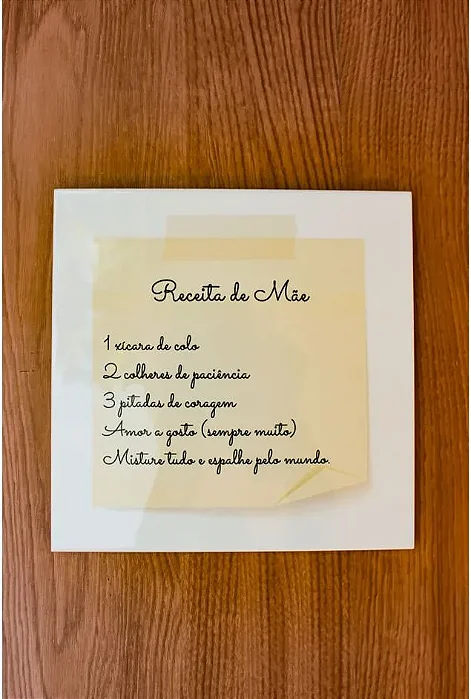 Receita de Mãe
1 xícara de colo
2 colheres de paciência
3 pitadas de coragem
Amor a gosto (sempre muito)
Misture tudo e espalhe pelo mundo.